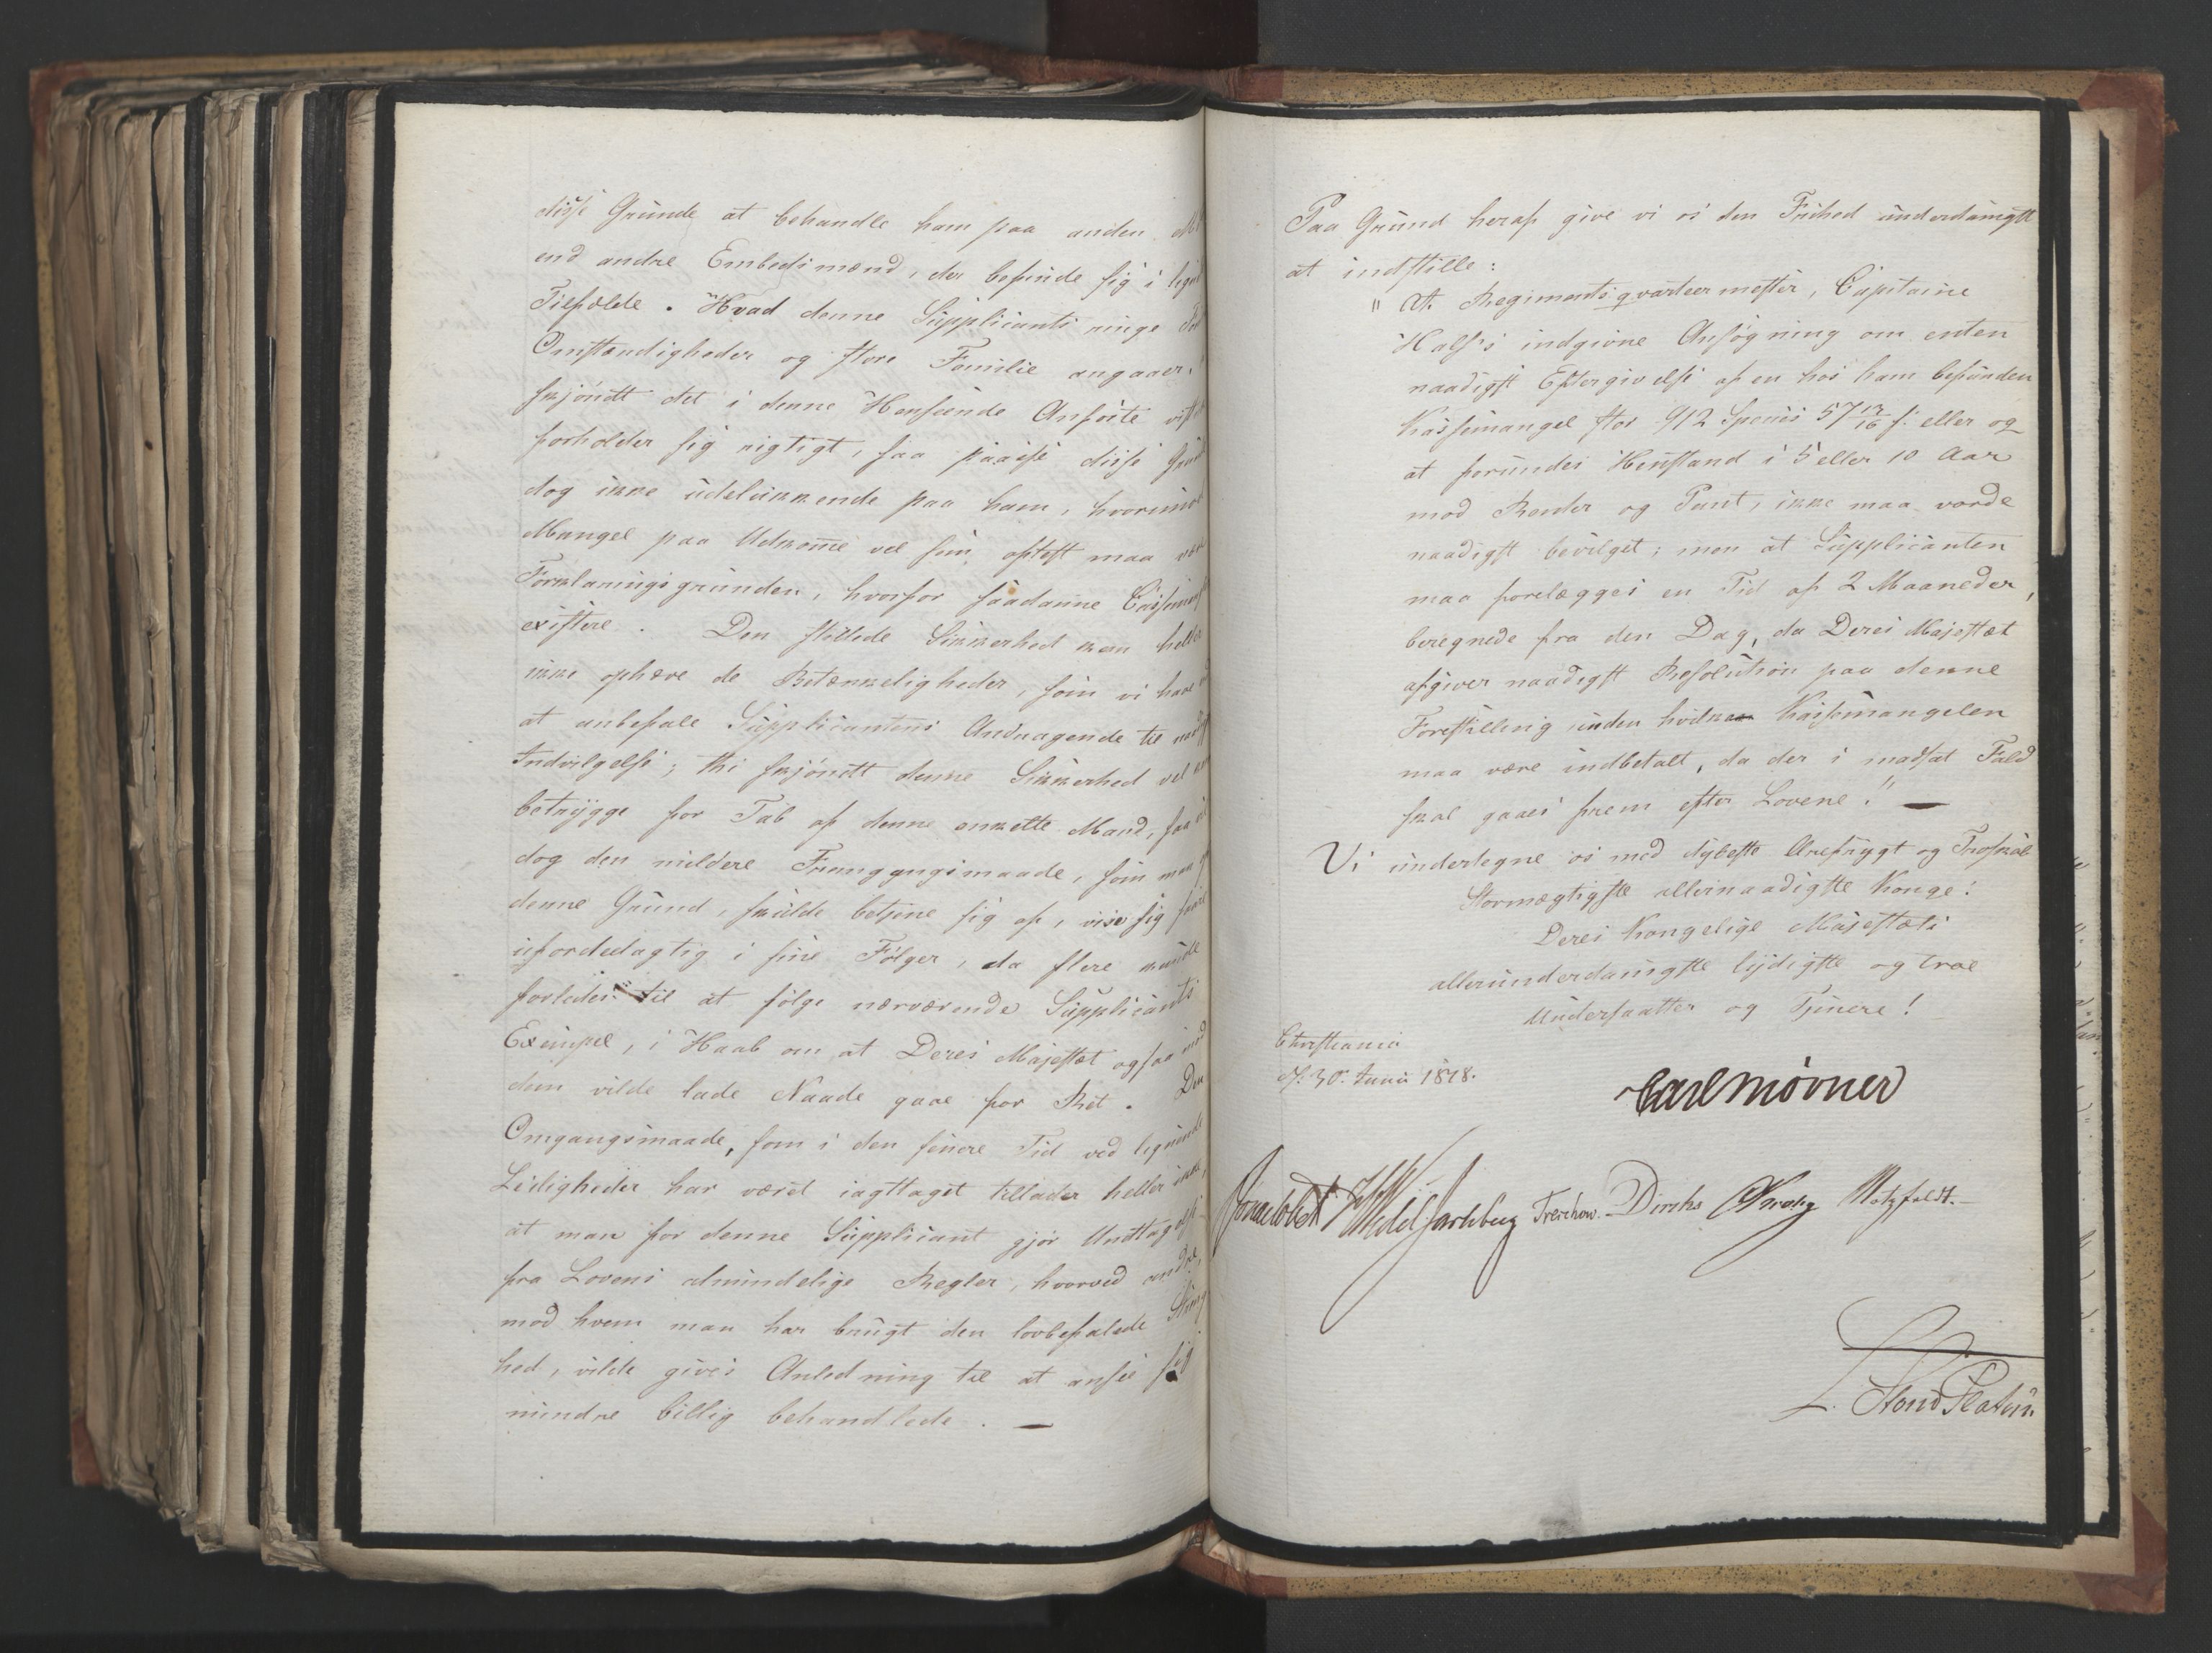 disse Grunde at behandle ham paa anden
end andre Embedsmænd, der befinde sig i lige
Tilfælde. Hvad denne Supplicants ringe
Omstændigheder og store Familie angaaer,
skjøndt det i denne Henseende Anførte vist
forholder sig rigtigt, saa passe disse
dog ikke udelukkende paa ham, hvorimod
Mangel paa Udkomme vel som oftest maa være
Forklaringsgrunden, hvorfor saadanne
existere. Den stillede Sikkerhed kan heller
ikke ophæve de Betænkeligheder, som vi have
at anbefale Supplicantens Andragende til
Indvilgelse; thi skjøndt denne Sikkerhed vel
betrygge for Tab af denne enkelte Mand, saa
dog den mildere Fremgangsmaade, som man
denne Grund, skulde betjene sig af, vise sig
ufordeelagtig i sine Følger, da flere kunde
forledes til at følge nærværende Supplicants
Exempel, i Haab om, at Deres Majestæt ogsaa mod
dem vilde lade Naade gaae for Ret. Den
Omgangsmaade, som i den senere Tid ved lignende
Leiligheder har været iagttaget tillader heller ikke,
at man for denne Supplicant gjør Undtagelse
fra Lovens almindelige Regler, hvorved andre,
mod hvem man har brugt den lovbefalede Streng
hed, vilde gives Anledning til at ansee sig
mindre billig behandlede. —
Paa Grund heraf give vi os den Frihed underdanigst
at indstille:
"At Regimentsqvarteermester, Capitaine
Halses indgivne Ansøgning om enten
naadigst Eftergivelse af en hos ham befunden
Kassemangel stor 912 Species 57 13/16 s: eller og
at forundes Henstand i 5 eller 10 Aar
mod Renter og Pant, ikke maa vorde
naadigst bevilget; men at Supplicanten
maa forelægges en Tid af 2 Maaneder,
beregnede fra den Dag, da Deres Majestæt
afgiver naadigst Resolution paa denne
Forestilling inden hvilken Kassemangelen
maa være indbetalt, da der i modsat Fald
skal gaaes frem efter Lovene." —
Vi undertegne os med dybeste Ærefrygt og Troskab
Stormægtigste allernaadigste Konge!
Deres Kongelige Majestæts
allerunderdanigste lydigste og troe
Undersaatter og Tjenere!
Christiania
d. 30. Junii 1818.
Carl Mörner
Sommerfeldt Wedel Jarlsberg Treschow. Diriks Krohg Motzfeldt.
L. Stoud Platou